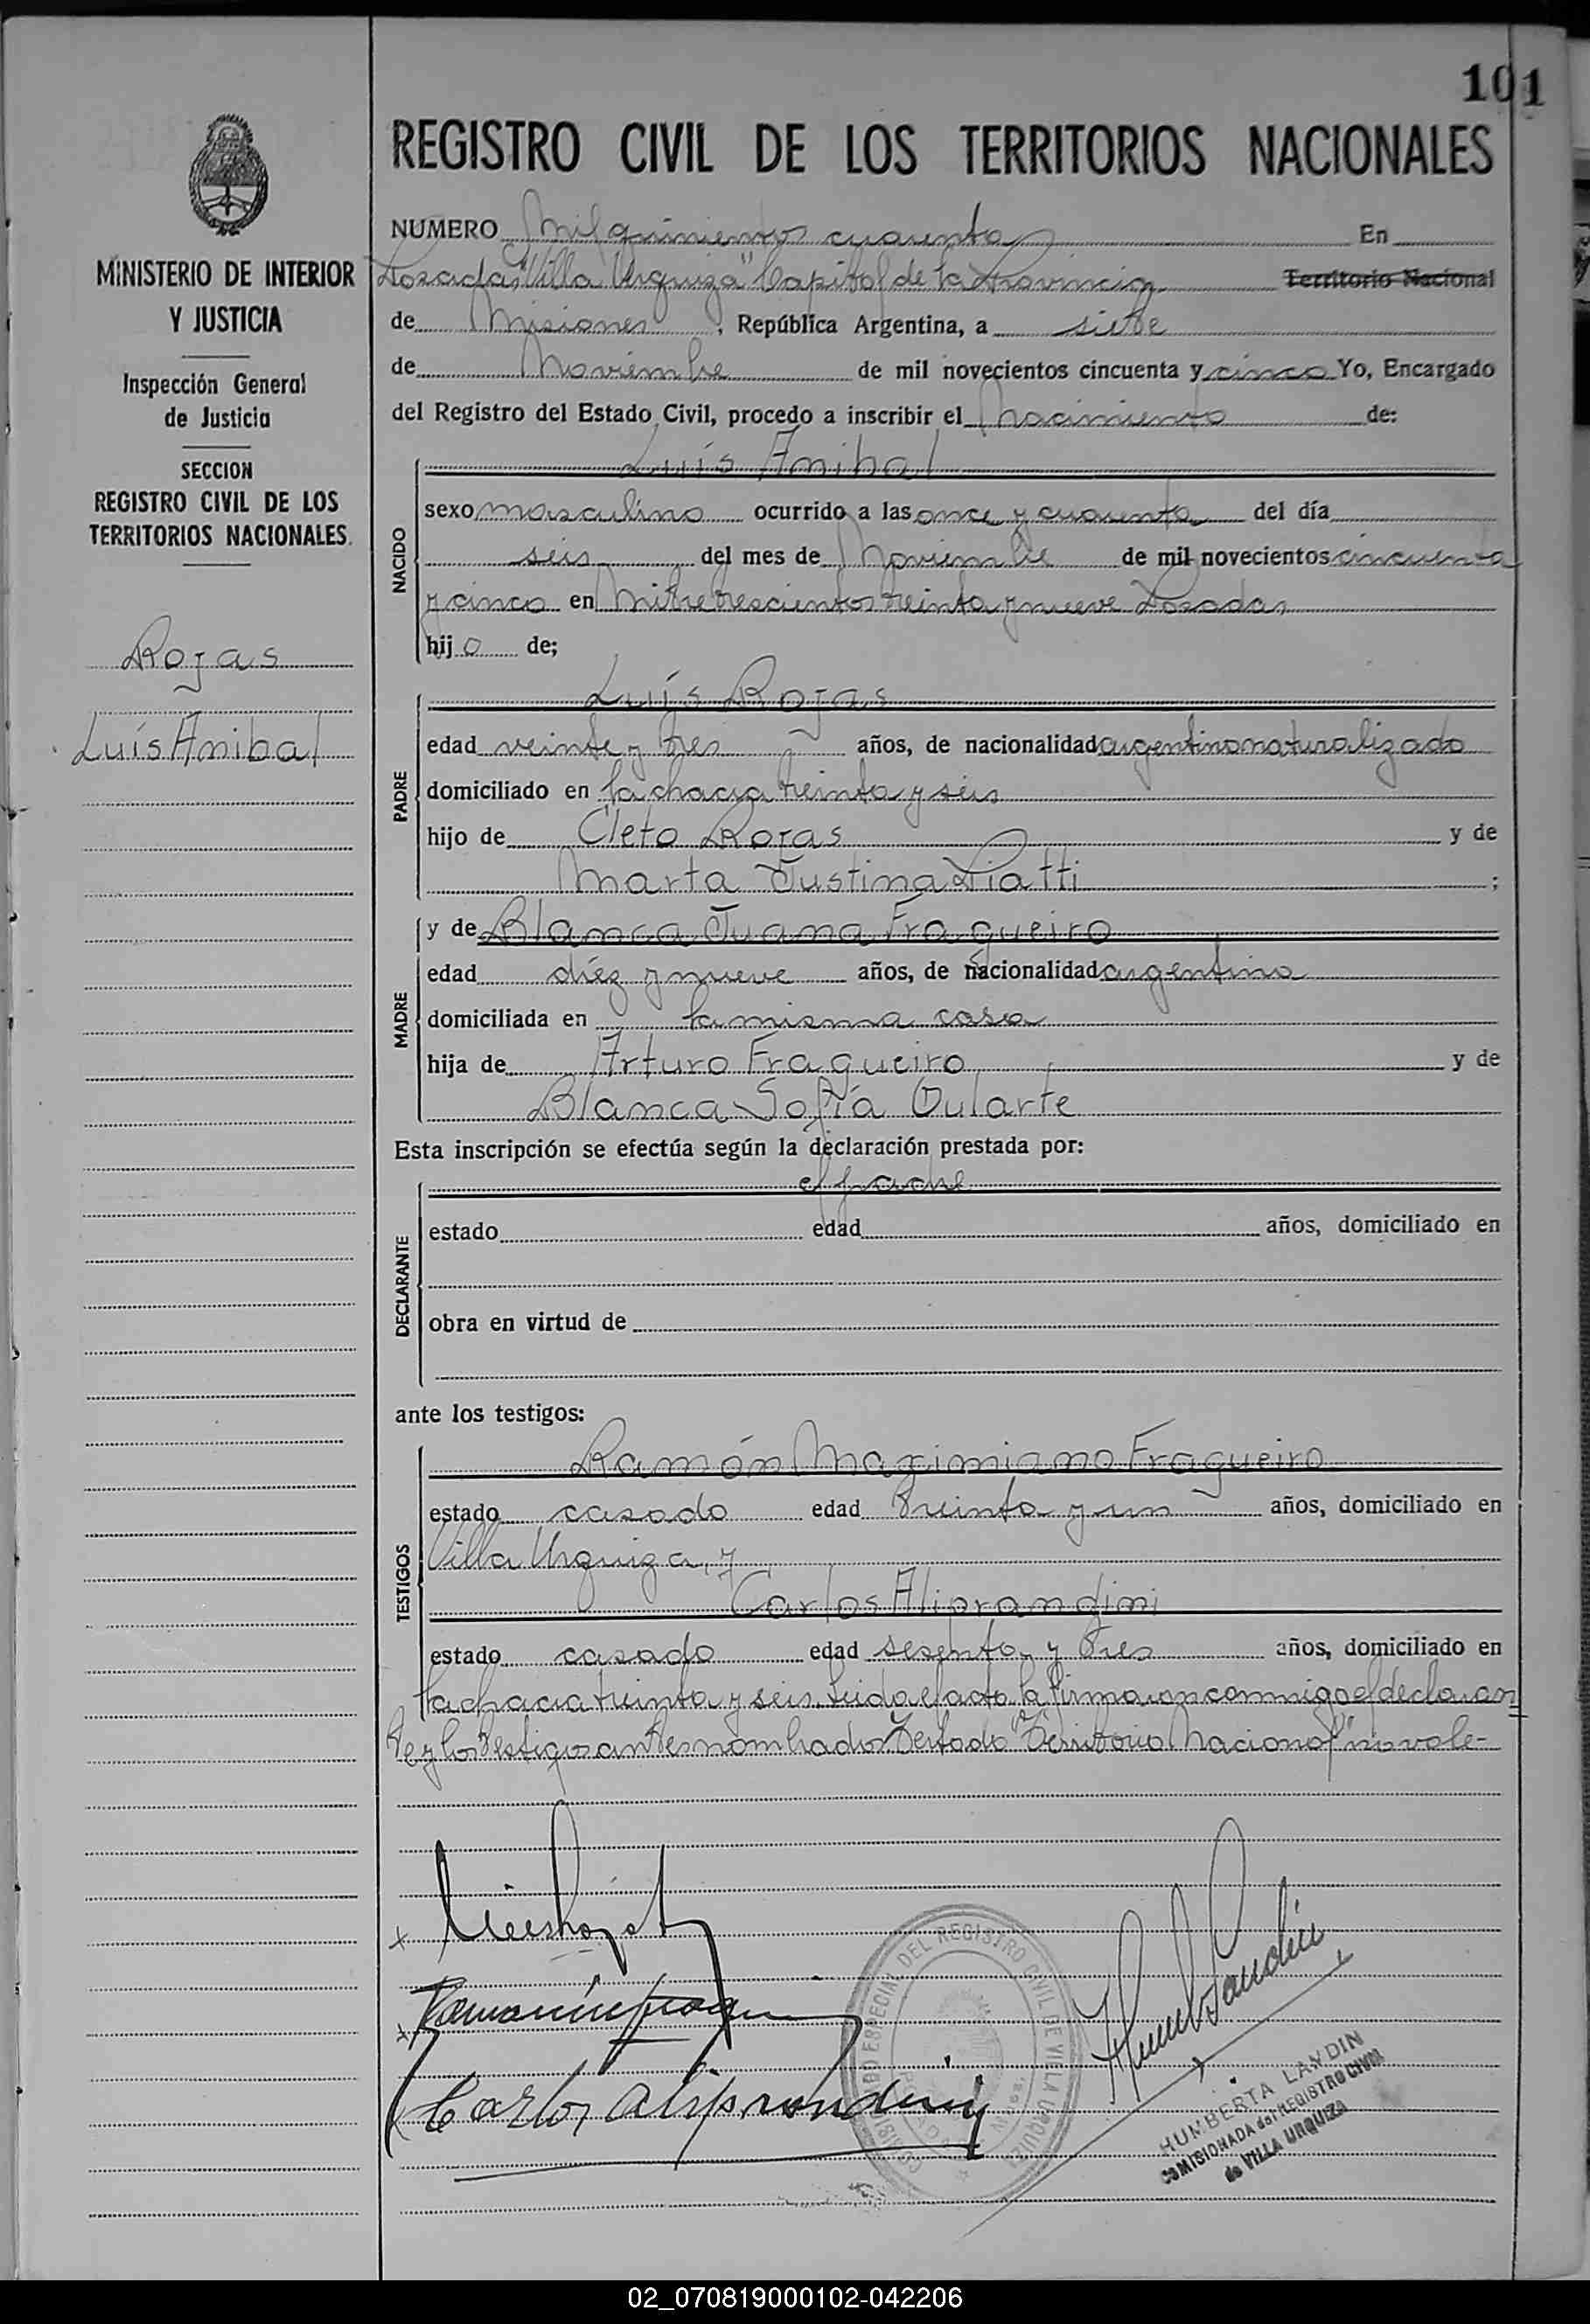 101
REGISTRO CIVIL DE LOS TERRITORIOS NACIONALES
MINISTERIO DE INTERIOR
Y JUSTICIA
Inspección General
de Justicia
SECCION
REGISTRO CIVIL DE LOS
TERRITORIOS NACIONALES.
Rojas
Luís Anibal
NUMERO Mil quinientos cuarenta En
Posadas "Villa Urquiza" Capital de la Provincia Territorio Nacional
de Misiones, República Argentina, a siete
de Noviembre de mil novecientos cincuenta y cinco Yo, Encargado
del Registro del Estado Civil, procedo a inscribir el Nacimiento de:
NACIDO
Luís Anibal
sexo masculino ocurrido a las once y cuarenta del día
seis del mes de Noviembre de mil novecientos cincuenta
y cinco en Mitre trescientos treinta y nueve Posadas
hijo de;
PADRE
Luís Rojas
edad veinte y tres años, de nacionalidad argentino naturalizado
domiciliado en la chacra treinta y seis
hijo de Cleto Rojas y de
Marta Justina Piatti ;
MADRE
y de Blanca Juana Fragueiro
edad diez y nueve años, de nacionalidad argentina
domiciliada en la misma casa
hija de Arturo Fragueiro y de
Blanca Sofía Dularte
Esta inscripción se efectúa según la declaración prestada por:
DECLARANTE
el padre
estado edad años, domiciliado en
obra en virtud de
ante los testigos:
TESTIGOS
Ramón Maximiano Fragueiro
estado casado edad treinta y un años, domiciliado en
Villa Urquiza, y
Carlos Aliprandini
estado casado edad sesenta y tres años, domiciliado en
la chacra treinta y seis. Leida el acta la firmaron conmigo el declaran
te y los testigos antes nombrados Testado "Territorio Nacional" no vale-
Luis Rojas
Ramón Fragueiro
Carlos Aliprandini
Humb Landin
COMISIONADO ESPECIAL DEL REGISTRO CIVIL DE VILLA URQUIZA
HUMBERTA LANDIN
COMISIONADA del REGISTRO CIVIL
de VILLA URQUIZA
02_070819000102-042206